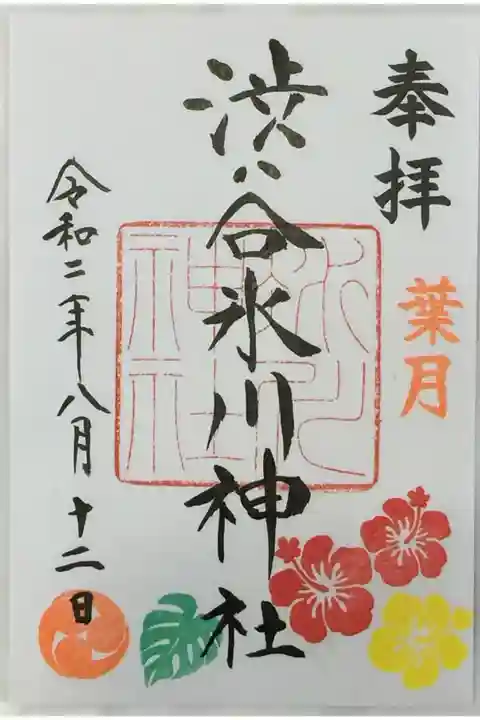 奉拝
葉月
渋谷氷川神社
令和二年八月十二日